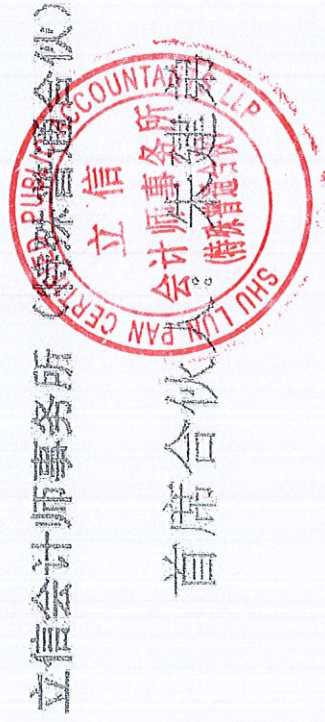 立信会计师事务所（特殊普通合伙）
首席合伙人：朱建弟
SHU LUN PAN CERTIFIED PUBLIC ACCOUNTANTS LLP
立信
会计师事务所
(特殊普通合伙)